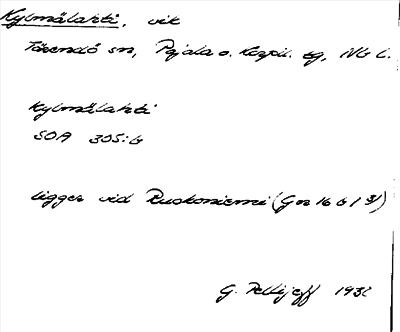 Kylmälahti, vik
Tärendö sn, Pajala o. Korpil. tg, Nb l.
Kylmälahti
SOA 305:6
ligger vid Ruskoniemi (Gn 16 b 1 31)
G. Pellijeff 1931